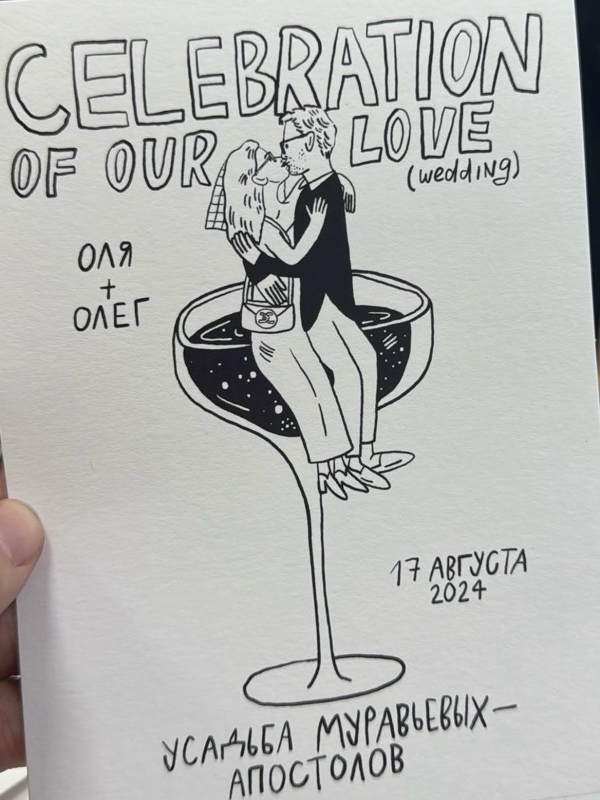 CELEBRATION
OF OUR LOVE
(wedding)
ОЛЯ
+
ОЛЕГ
17 АВГУСТА
2024
УСАДЬБА МУРАВЬЕВЫХ–
АПОСТОЛОВ